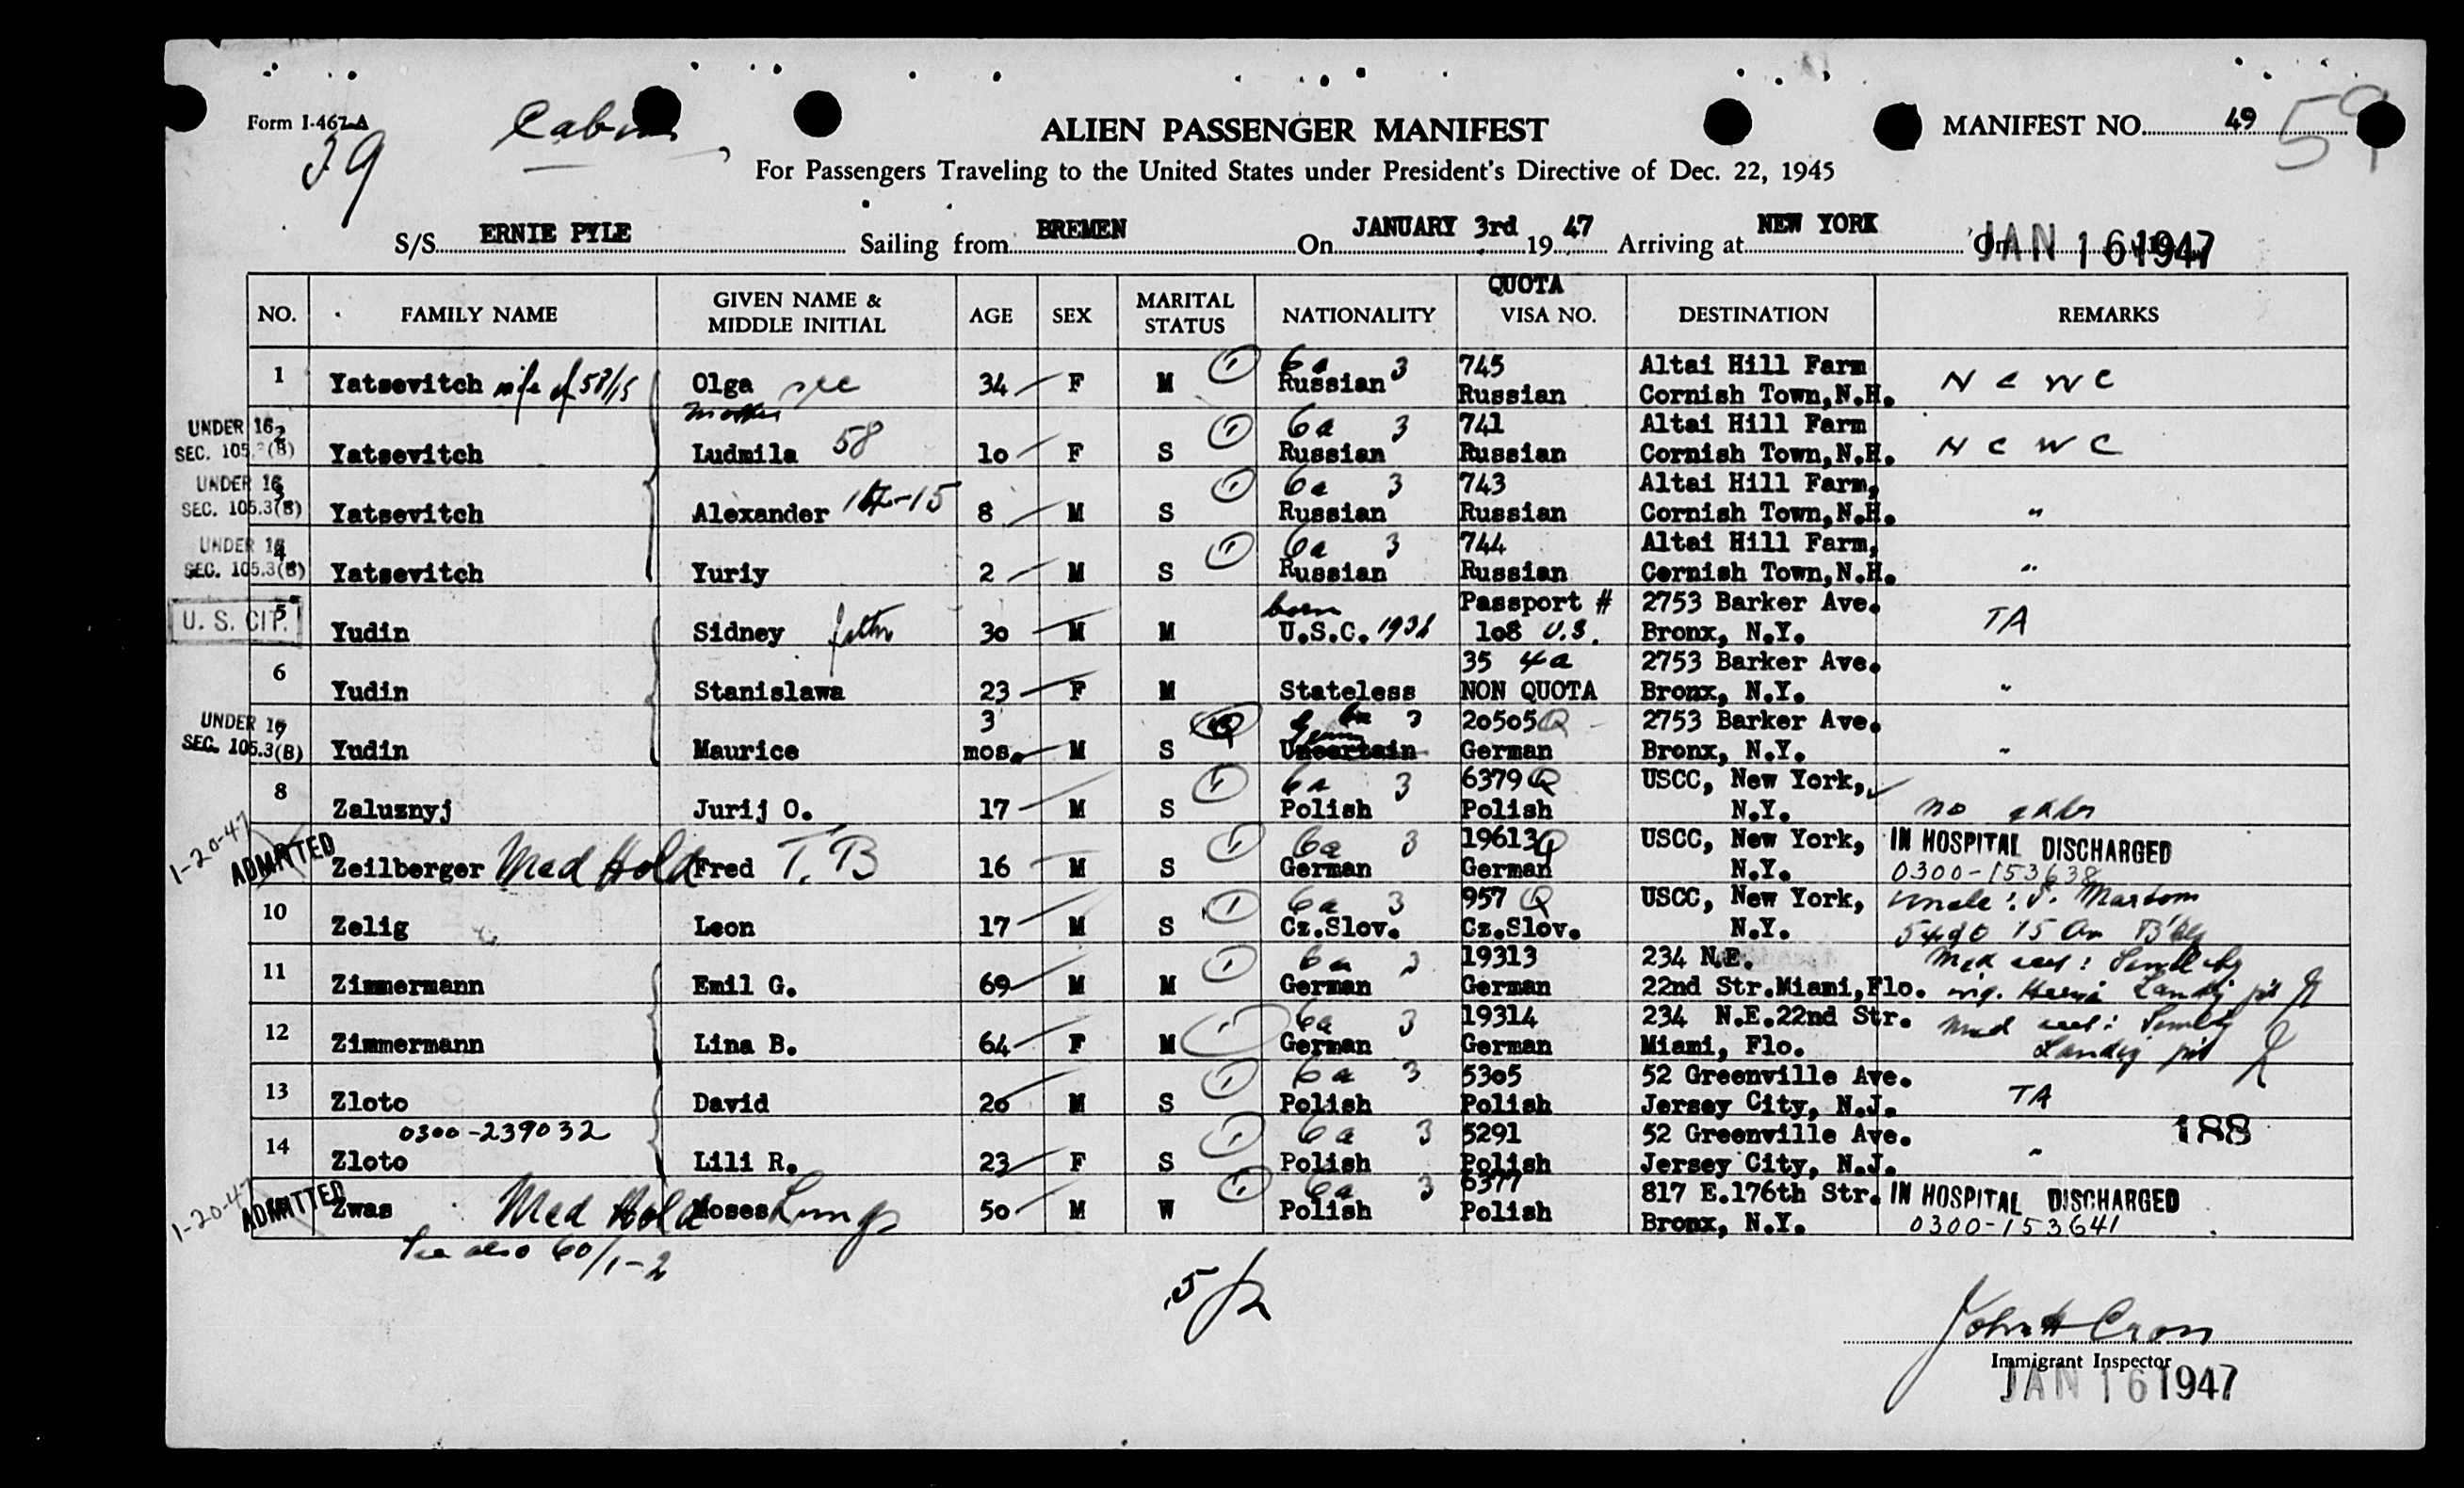 Form I-467-A
39
Cabin
ALIEN PASSENGER MANIFEST
MANIFEST NO. 49 59
For Passengers Traveling to the United States under President's Directive of Dec. 22, 1945
S/S ERNIE PYLE Sailing from BREMEN On JANUARY 3rd 19 47 Arriving at NEW YORK On JAN 16 1947
QUOTA
NO. FAMILY NAME GIVEN NAME & MIDDLE INITIAL AGE SEX MARITAL STATUS NATIONALITY VISA NO. DESTINATION REMARKS
1 Yatsevitch wife of 58/15 Olga 34 F M 6a 3 Russian 745 Russian Altai Hill Farm Cornish Town,N.H. N C W C
UNDER 16 SEC. 105.3(B) 2 Yatsevitch mother Ludmila 58 10 F S 6a 3 Russian 741 Russian Altai Hill Farm Cornish Town,N.H. N C W C
UNDER 16 SEC. 105.3(B) 3 Yatsevitch Alexander 8 M S 6a 3 Russian 743 Russian Altai Hill Farm, Cornish Town,N.H. "
UNDER 16 SEC. 105.3(B) 4 Yatsevitch Yuriy 2 M S 6a 3 Russian 744 Russian Altai Hill Farm, Cornish Town,N.H. "
U. S. CIT. 5 Yudin Sidney father 30 M M born U.S.C. Passport # 108 U.S. 2753 Barker Ave. Bronx, N.Y. TA
6 Yudin Stanislawa 23 F M Stateless 35 4a NON QUOTA 2753 Barker Ave. Bronx, N.Y. "
UNDER 16 SEC. 105.3(B) 7 Yudin Maurice 3 mos. M S Uncertain 20505 Q German 2753 Barker Ave. Bronx, N.Y. "
8 Zaluznyj Jurij O. 17 M S 6a 3 Polish 6379 Q Polish USCC, New York, N.Y. no
1-20-47 ADMITTED Zeilberger Med Hold Fred T.B 16 M S 6a 3 German 19613 Q German USCC, New York, N.Y. IN HOSPITAL DISCHARGED 0300-153638
10 Zelig Leon 17 M S 6a 3 Cz.Slov. 957 Q Cz.Slov. USCC, New York, N.Y. uncle:
11 Zimmermann Emil G. 69 M M 6a 3 German 19313 German 234 N.E. 22nd Str.Miami,Flo. Med cert:
12 Zimmermann Lina B. 64 F M 6a 3 German 19314 German 234 N.E.22nd Str. Miami, Flo. Med cert:
13 Zloto David 26 M S 6a 3 Polish 5305 Polish 52 Greenville Ave. Jersey City, N.J. TA
14 0300-239032 Zloto Lili R. 23 F S 6a 3 Polish 5291 Polish 52 Greenville Ave. Jersey City, N.J. " 188
1-20-47 ADMITTED Zwas Med Hold Moses Lungs 50 M W 6a 3 Polish 6377 Polish 817 E.176th Str. Bronx, N.Y. IN HOSPITAL DISCHARGED 0300-153641
See also 60/1-2
John H Cron
Immigrant Inspector
JAN 16 1947